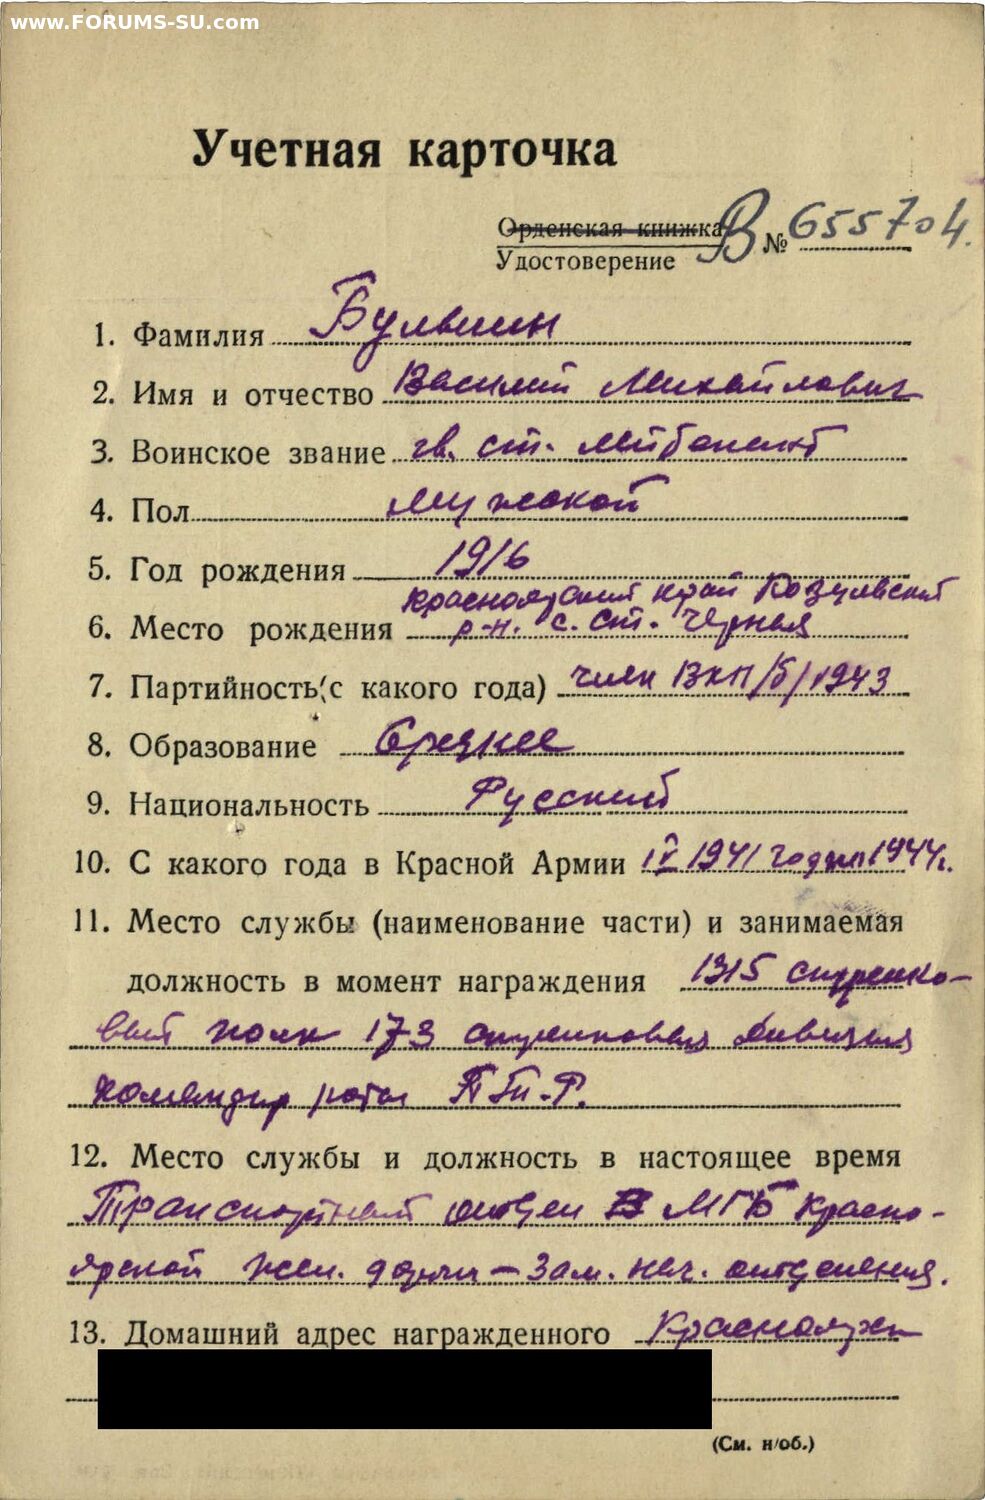 www.FORUMS-SU.com
Учетная карточка
Орденская книжка
Удостоверение В № 655704.
1. Фамилия Булвин
2. Имя и отчество Василий Михайлович
3. Воинское звание гв. ст. лейтенант
4. Пол мужской
5. Год рождения 1916
Красноярский край Козульский
6. Место рождения р-н. с. ст. Черная
7. Партийность (с какого года) член ВКП/б/ 1943
8. Образование Среднее
9. Национальность Русский
10. С какого года в Красной Армии IV 1941 год по 1944г.
11. Место службы (наименование части) и занимаемая
должность в момент награждения 1315 стрелко-
вый полк 173 стрелковая дивизия
командир роты П.Т.Р.
12. Место службы и должность в настоящее время
Транспортный отдел МГБ Красно-
ярской жел. дороги – Зам. нач. отделения.
13. Домашний адрес награжденного Красноярск
(См. н/об.)